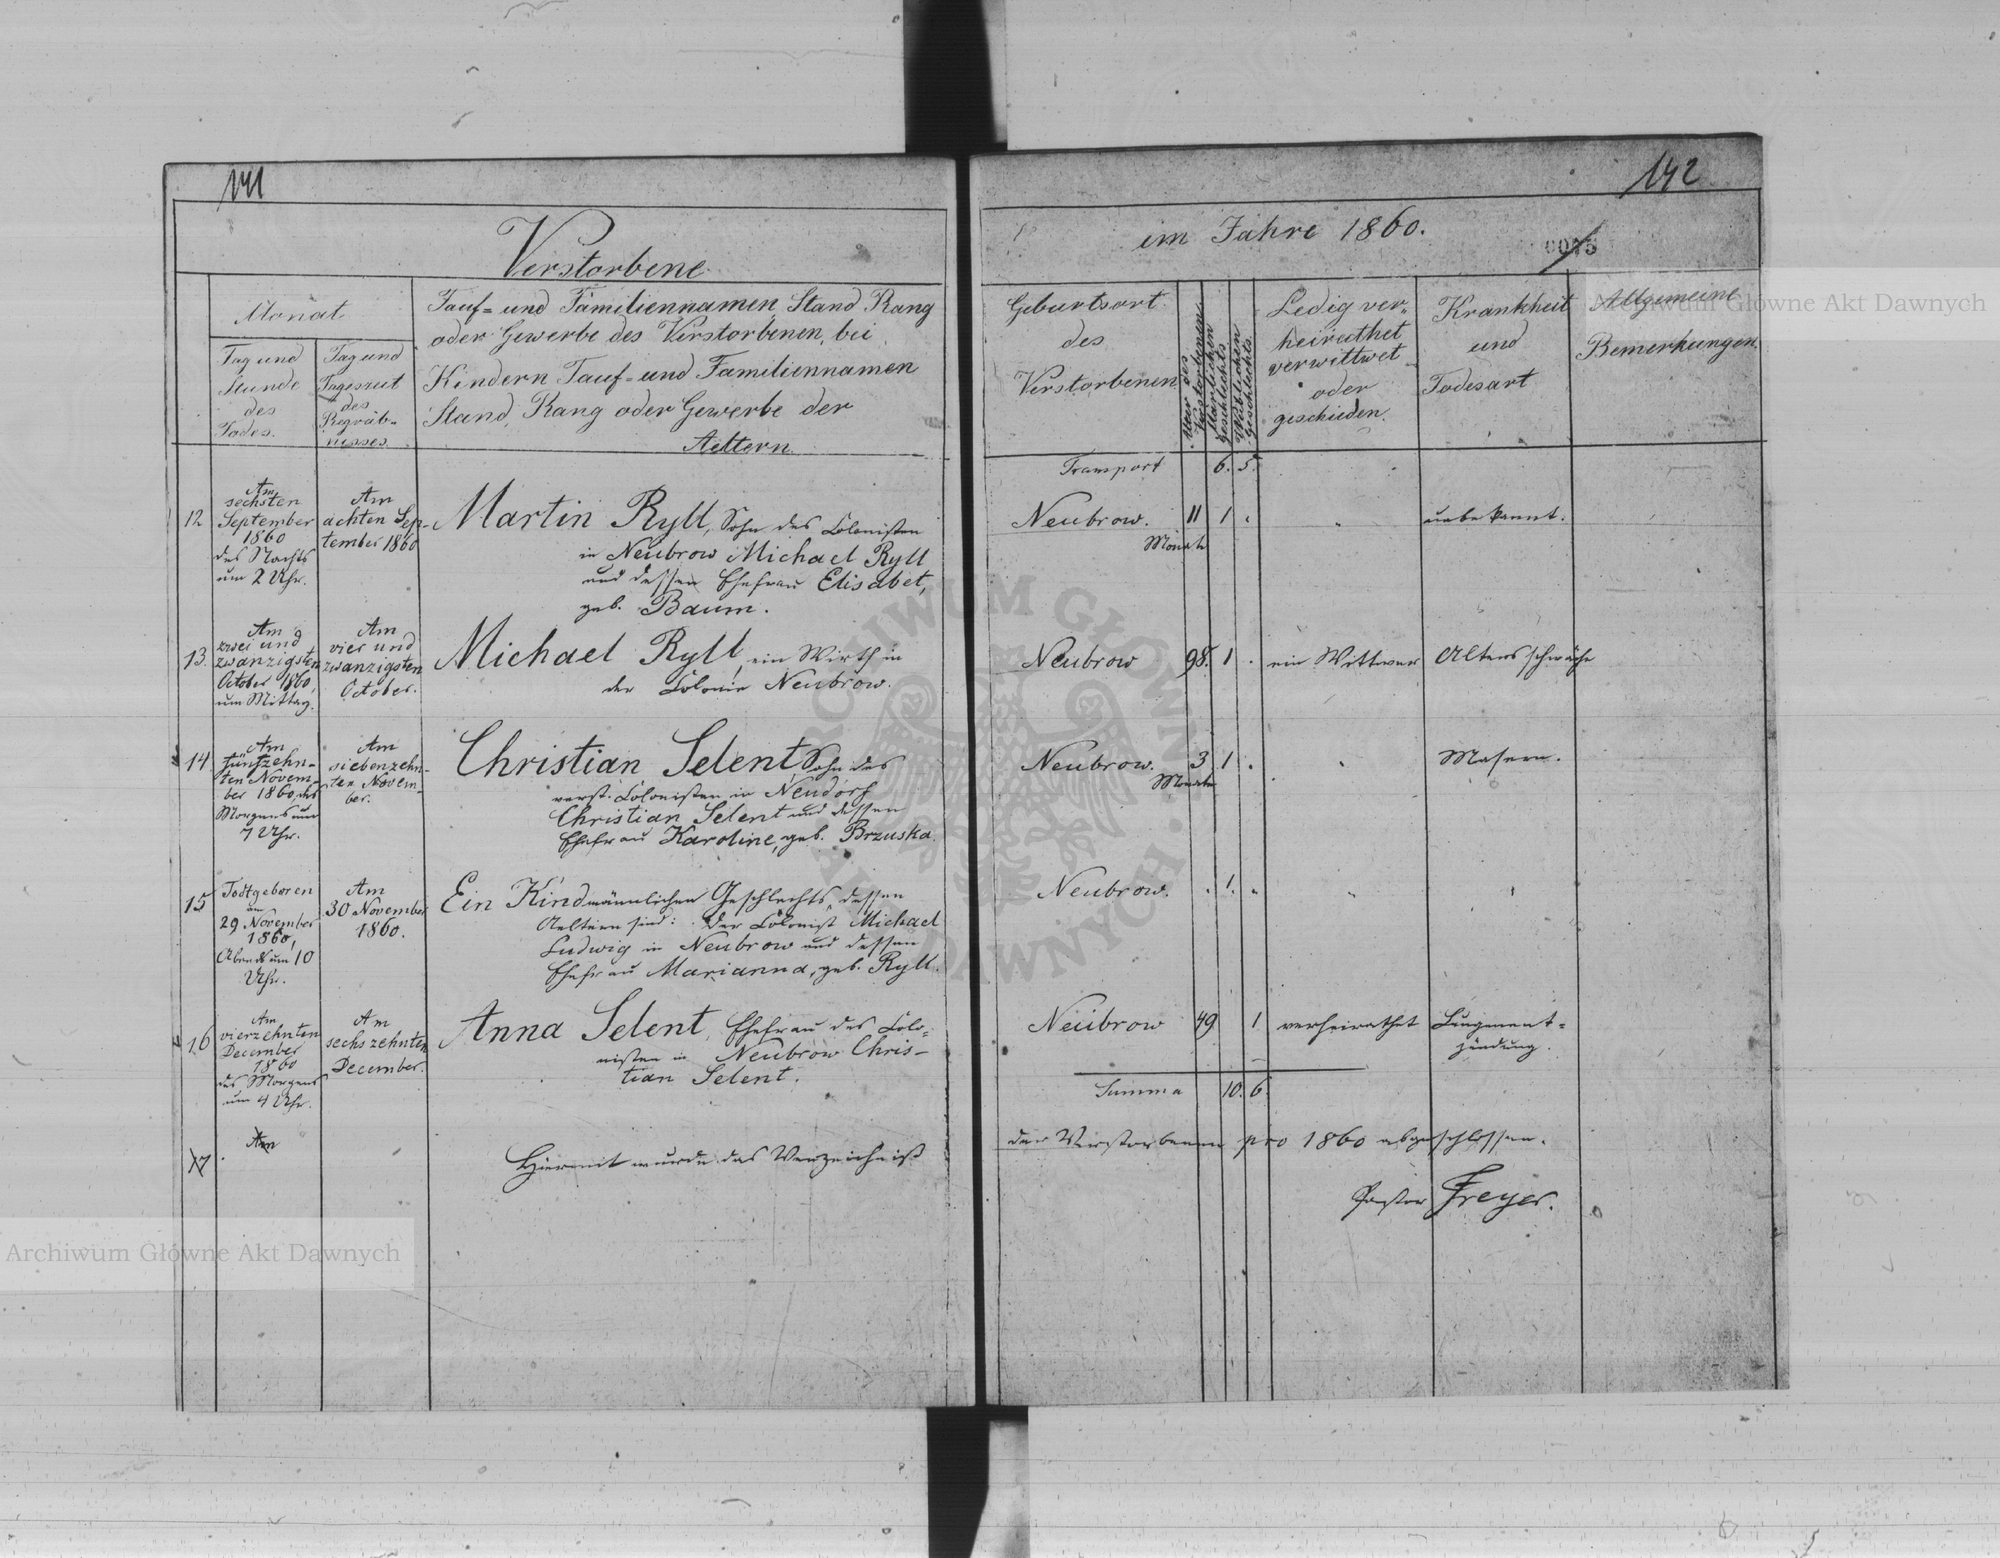 141
Verstorbene
Monat.
Tag und
Stunde
des
Todes.
Tag und
Tageszeit
des
Begräb-
nisses.
Tauf- und Familiennamen, Stand Rang
oder Gewerbe des Verstorbenen, bei
Kindern Tauf- und Familiennamen
Stand, Rang oder Gewerbe der
Aeltern.
12
Am
sechsten
September
1860
des Nachts
um 2 Uhr.
Am
achten Sep-
tember 1860
Martin Ryll, Sohn des Colonisten
in Neubrow Michael Ryll
und dessen Ehefrau Elisabet,
geb. Baum.
13.
Am
zwei und
zwanzigsten
October 1860,
um Mittag.
Am
vier und
zwanzigsten
October.
Michael Ryll, ein Wirth in
der Colonie Neubrow.
14
Am
fünfzehn-
ten Novem-
ber 1860, des
Morgens um
7 Uhr.
Am
siebenzehn-
ten Novem-
ber.
Christian Selent, Sohn des
verst. Colonisten in Neudorf
Christian Selent und dessen
Ehefrau Karoline, geb. Brzuska.
15
Todtgeboren
am
29 November
1860,
Abends um 10
Uhr.
Am
30 November
1860.
Ein Kind männlichen Geschlechts, dessen
Aeltern sind: Der Colonist Michael
Ludwig in Neubrow und dessen
Ehefrau Marianna, geb. Ryll.
16
Am
vierzehnten
December
1860
des Morgens
um 4 Uhr.
Am
sechszehnten
December.
Anna Selent, Ehefrau des Colo-
nisten in Neubrow Chris-
tian Selent.
17
Am
Hiermit wurde das Verzeichniß
142
im Jahre 1860.
0075
Geburtsort
des
Verstorbenen
Alter des
Verstorbenen
Männlichen
Geschlechts
Weiblichen
Geschlechts.
Ledig ver-
heirathet
verwittwet
oder
geschieden.
Krankheit
und
Todesart
Allgemeine
Bemerkungen.
Transport 6. 5.
Neubrow. 11 1 . " unbekannt.
Monate
Neubrow 98. 1 . ein Wittwer Altersschwäche
Neubrow. 3 1 . " Masern.
Monate
Neubrow. . 1. " "
Neubrow 49 1 verheirathet Lungenent-
zündung.
Summa 10. 6.
der Verstorbenen pro 1860 abgeschlossen.
Pastor Freyer.
Archiwum Główne Akt Dawnych
Archiwum Główne Akt Dawnych
ARCHIWUM GŁÓWNE AKT DAWNYCH